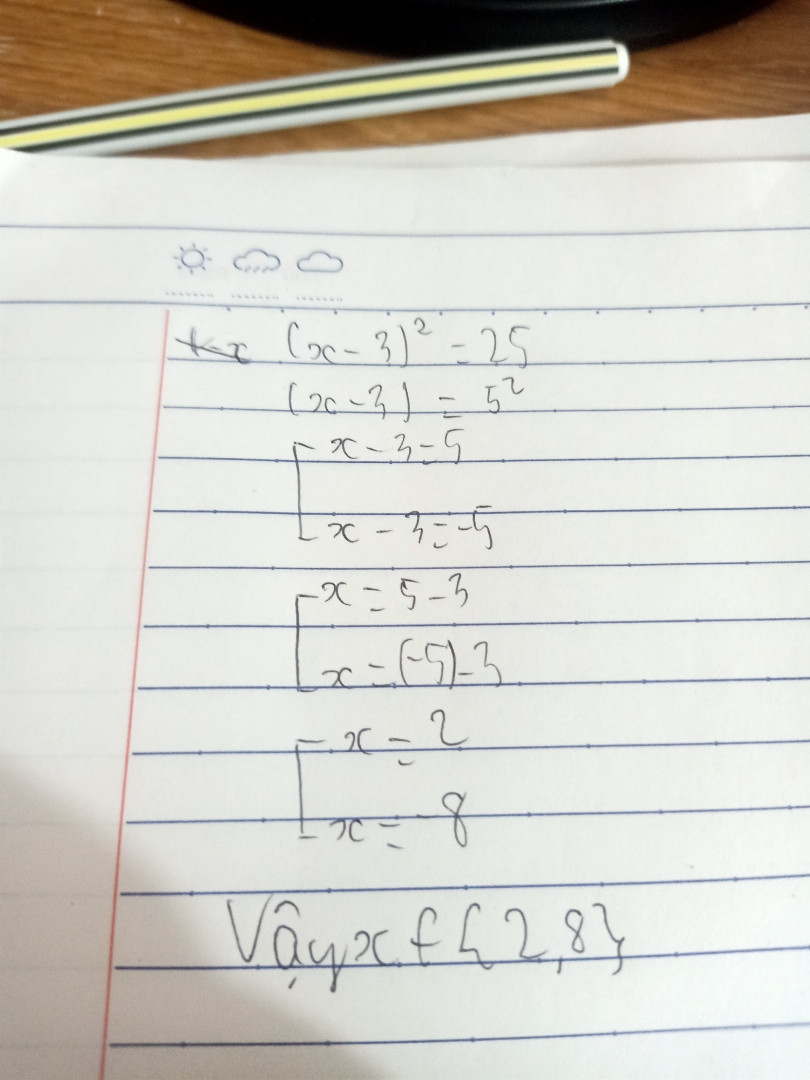 (x-3)² = 25
(x-3) = 5²
x - 3 = 5
x - 3 = -5
x = 5 - 3
x = (-5) - 3
x = 2
x = -8
Vậy x ∈ {2,8}